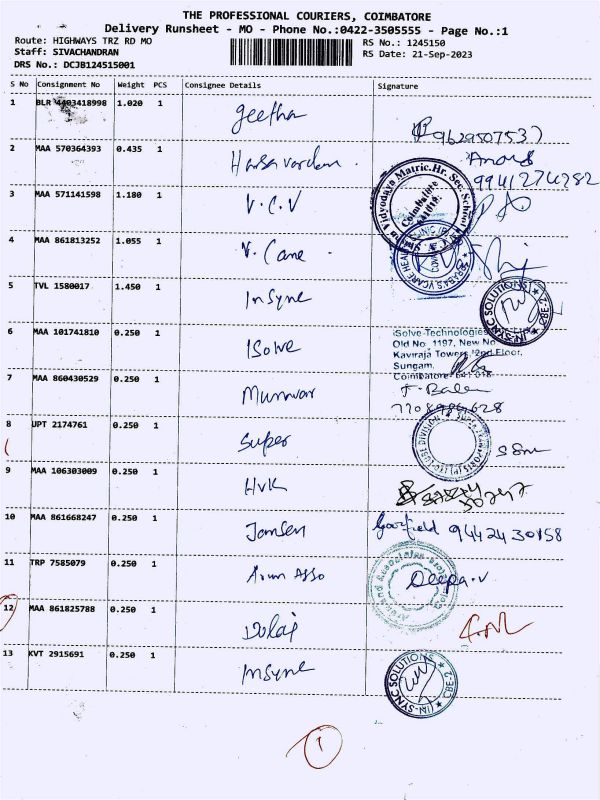 THE PROFESSIONAL COURIERS, COIMBATORE
Delivery Runsheet - MO - Phone No.:0422-3505555 - Page No.:1
Route: HIGHWAYS TRZ RD MO
RS No.: 1245150
Staff: SIVACHANDRAN
RS Date: 21-Sep-2023
DRS No.: DCJB124515001
S No Consignment No Weight PCS Consignee Details Signature
1 BLR 4403418998 1.020 1 geetha
9629507537
2 MAA 570364393 0.435 1 Harsavardan Anand
9941274282
3 MAA 571141598 1.180 1 V.C.V
Vidyodaya Matric.Hr. Sec. School
Coimbatore
641018
4 MAA 861813252 1.055 1 V. Cane
5 TVL 1580017 1.450 1 InSync
(IN-SYNC SOLUTIONS) ★ CBE-2 ★
6 MAA 101741810 0.250 1 ISolve
iSolve-Technologies
Old No. 1197, New No
Kaviraja Towers, 2nd Floor,
Sungam,
Coimbatore 641 018
7 MAA 860430529 0.250 1 Munwar
8 UPT 2174761 0.250 1 Super
9 MAA 106303009 0.250 1 HVK
10 MAA 861668247 0.250 1 Jansen Garfield 9442430158
11 TRP 7585079 0.250 1 Arun Asso Deepa.V
12 MAA 861825788 0.250 1
13 KVT 2915691 0.250 1 InSync
(IN-SYNC SOLUTIONS) ★ CBE-2 ★
1